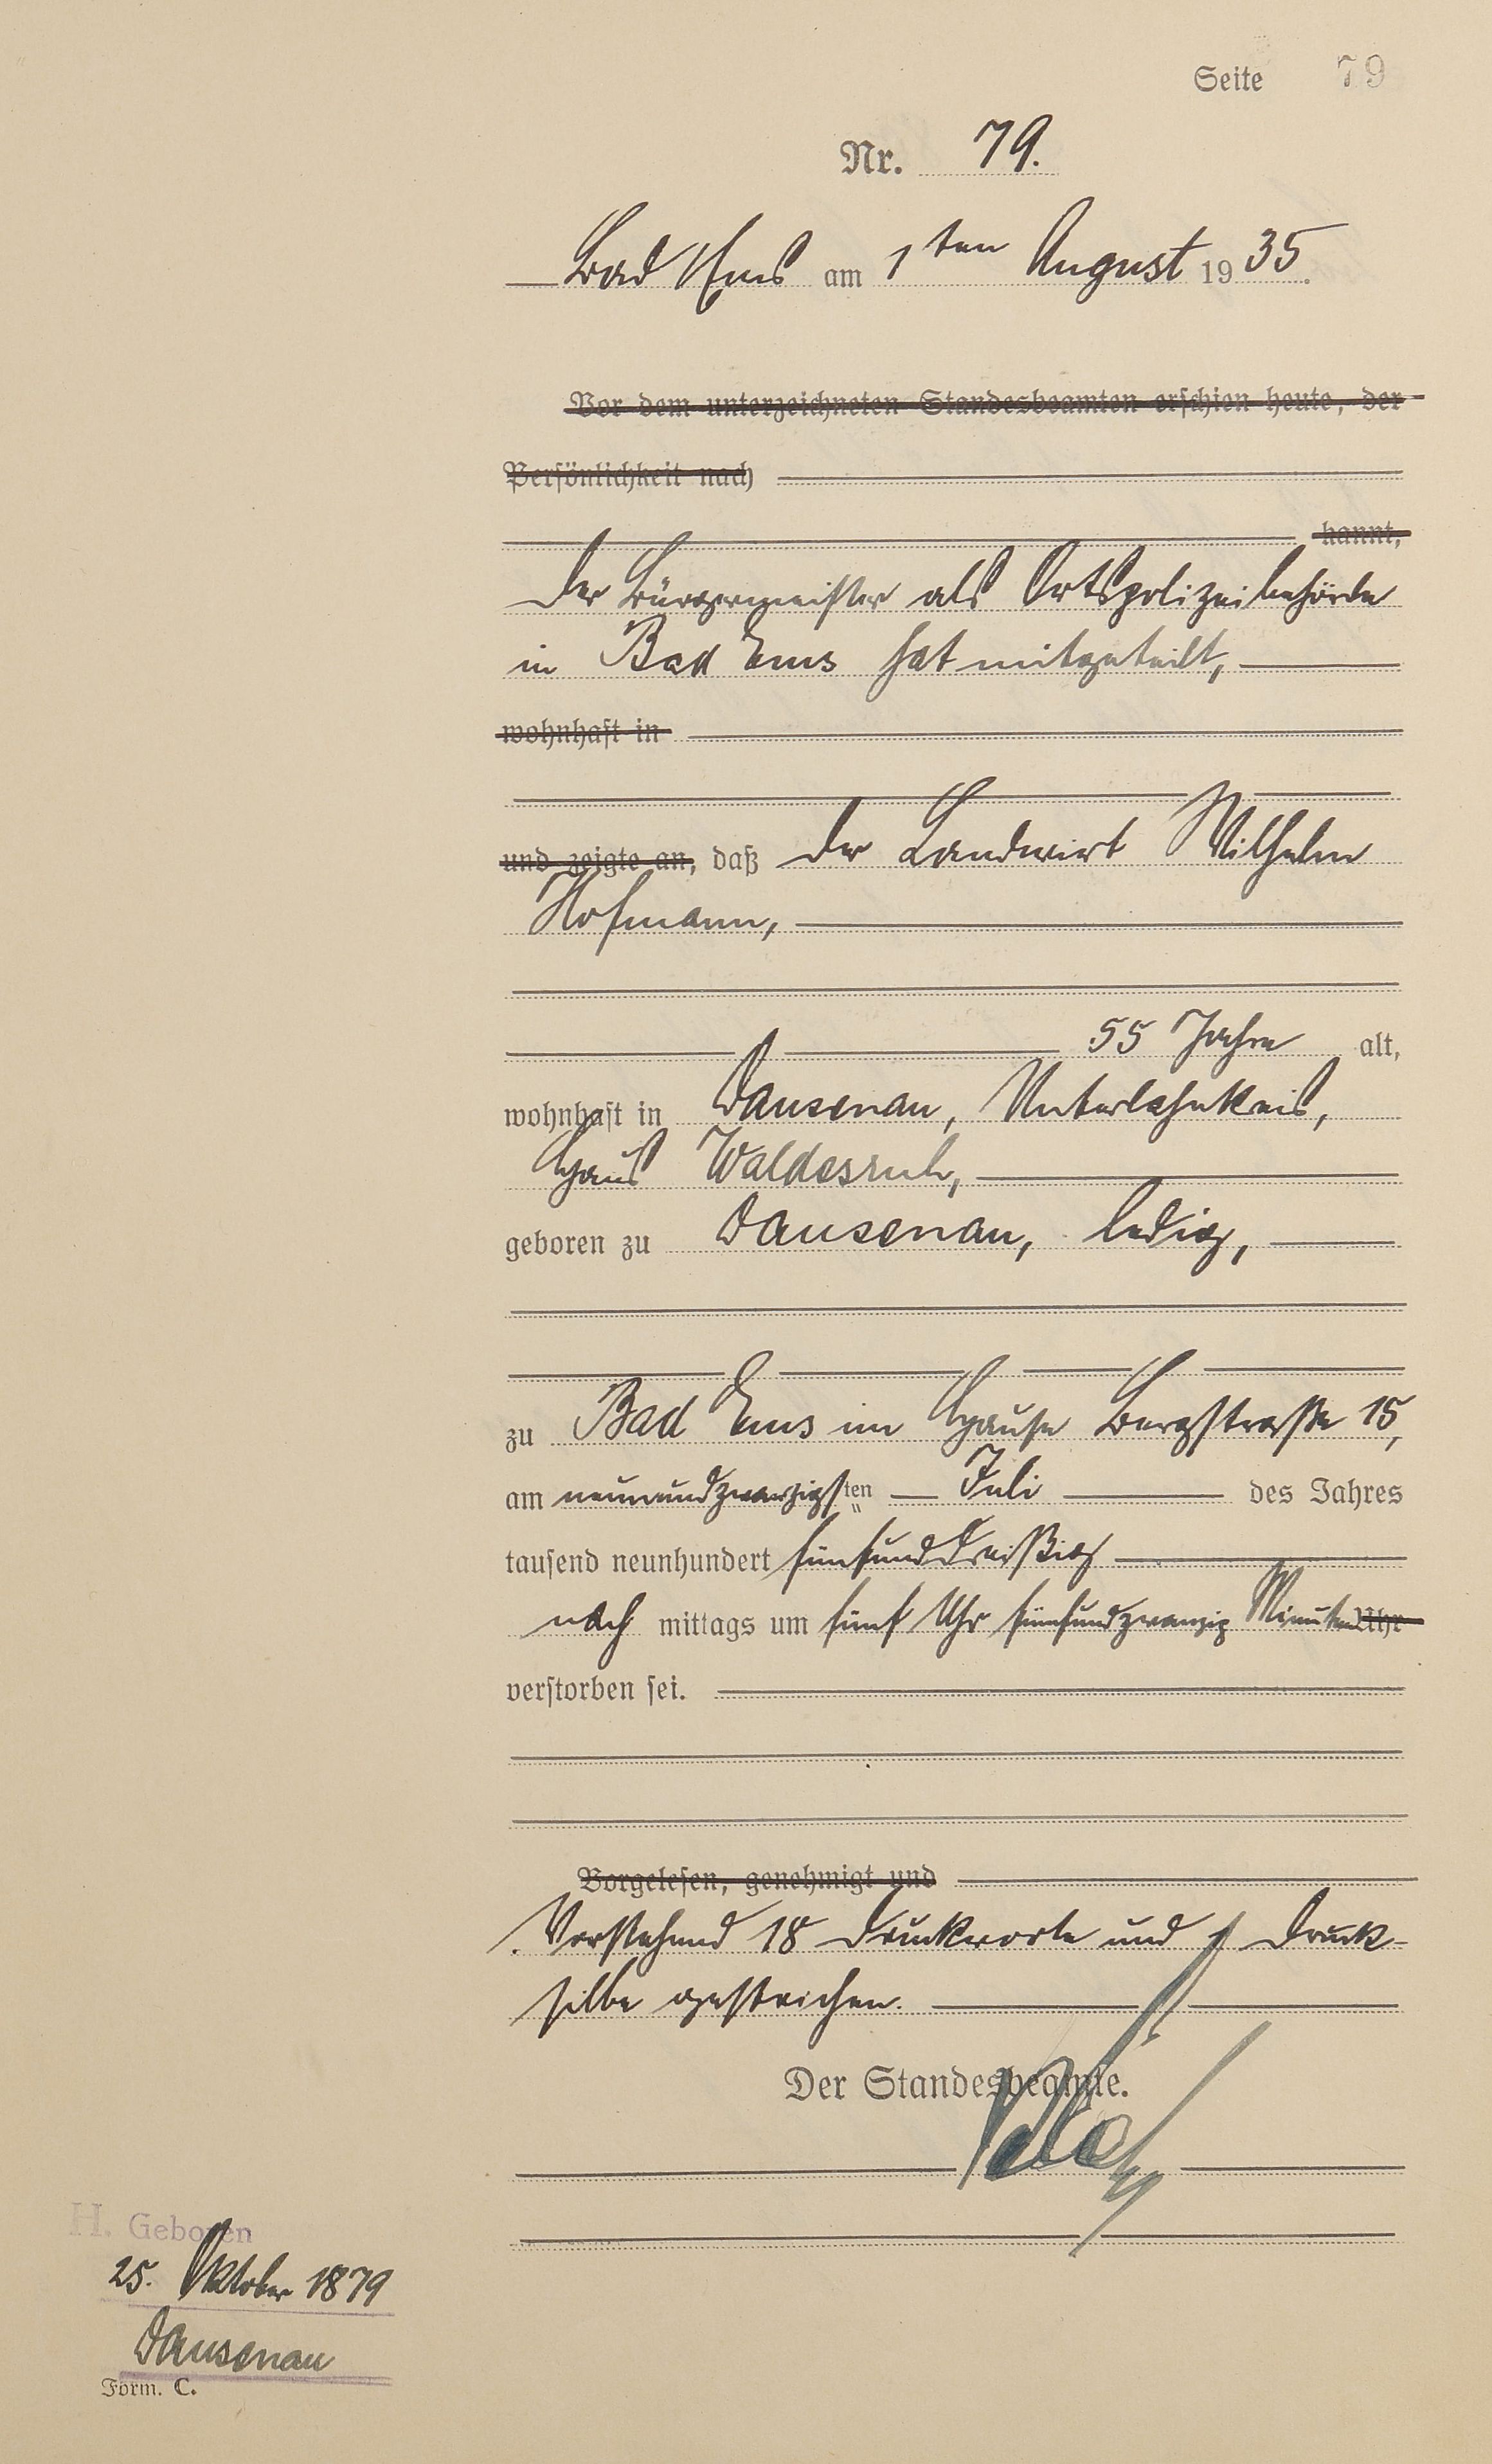 Seite 79
Nr. 79.
Bad Ems am 1ten August 1935.
Vor dem unterzeichneten Standesbeamten erschien heute, der
Persönlichkeit nach
kannt,
Der Bürgermeister als Ortspolizeibehörde
in Bad Ems hat mitgeteilt,
wohnhaft in
und zeigte an, daß der Landwirt Wilhelm
Hofmann,
55 Jahre alt,
wohnhaft in Dausenau, Unterlahnkreis,
Haus Waldesruh,
geboren zu Dausenau, ledig,
zu Bad Ems im Hause Bergstraße 15,
am neunundzwanzigsten Juli des Jahres
tausend neunhundert fünfunddreißig
nachmittags um fünf Uhr fünfundzwanzig Minuten Uhr
verstorben sei.
Vorgelesen, genehmigt und
Vorstehend 18 Druckworte und 1 Druck-
silbe gestrichen.
Der Standesbeamte.
H. Geboren
25. Oktober 1879
Dausenau
Form. C.